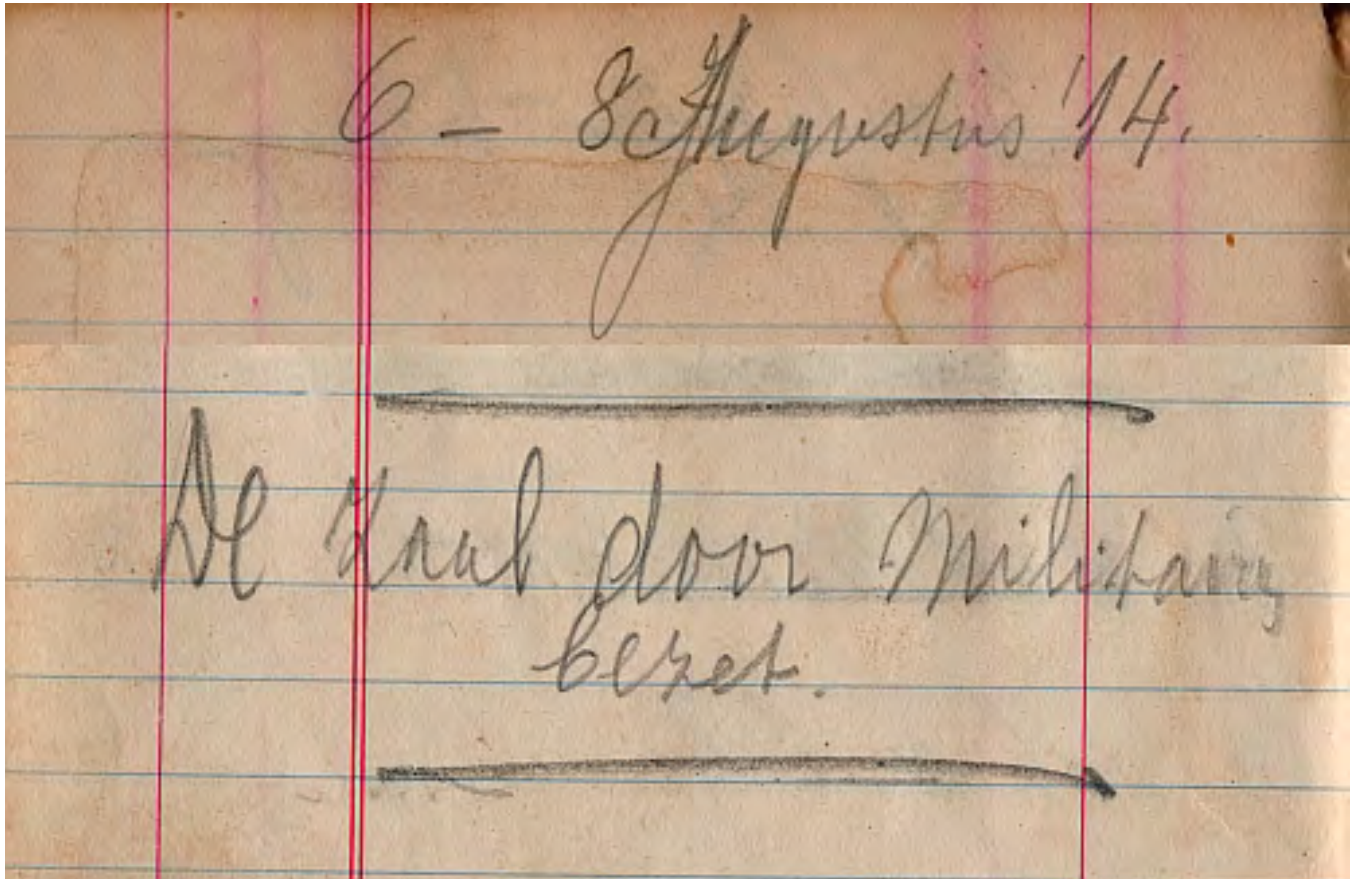 6 – 8 Augustus '14.
De Zaal door Militairen
bezet.